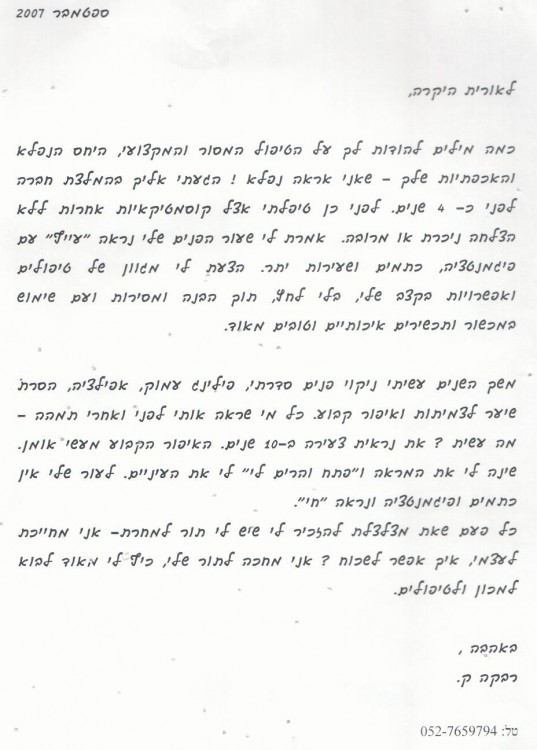 ספטמבר 2007
לאורית היקרה,
כמה מילים להודות לך על הטיפול המסור והמקצועי, היחס הנפלא
והאכפתיות שלך – שאני אראה נפלא ! הגעתי אליך בהמלצת חברה
לפני כ– 4 שנים. לפני כן טיפלתי אצל קוסמטיקאיות אחרות ללא
הצלחה ניכרת או מרובה. אמרת לי שעור הפנים שלי נראה "עייף" עם
פיגמנטציה, כתמים ושעירות יתר. הצעת לי מגוון של טיפולים
ואפשרויות בקצב שלי, בלי לחץ, תוך הבנה ומסירות ועם שימוש
במכשור ותכשירים איכותיים וטובים מאוד.
משך השנים עשיתי ניקוי פנים סדרתי, פילינג עמוק, אפילציה, הסרת
שיער לצמיתות ואיפור קבוע. כל מי שראה אותי לפני ואחרי תמהה –
מה עשית ? את נראית צעירה ב–10 שנים. האיפור הקבוע מעשי אומן.
שינה לי את המראה ו"פתח והרים לי" לי את העיניים. לעור שלי אין
כתמים ופיגמנטציה ונראה "חי".
כל פעם שאת מצלצלת להזכיר לי שיש לי תור למחרת– אני מחייכת
לעצמי, איך אפשר לשכוח ? אני מחכה לתור שלי, כיף לי מאוד לבוא
למכון ולטיפולים.
באהבה ,
רבקה ק.
טל: 052-7659794